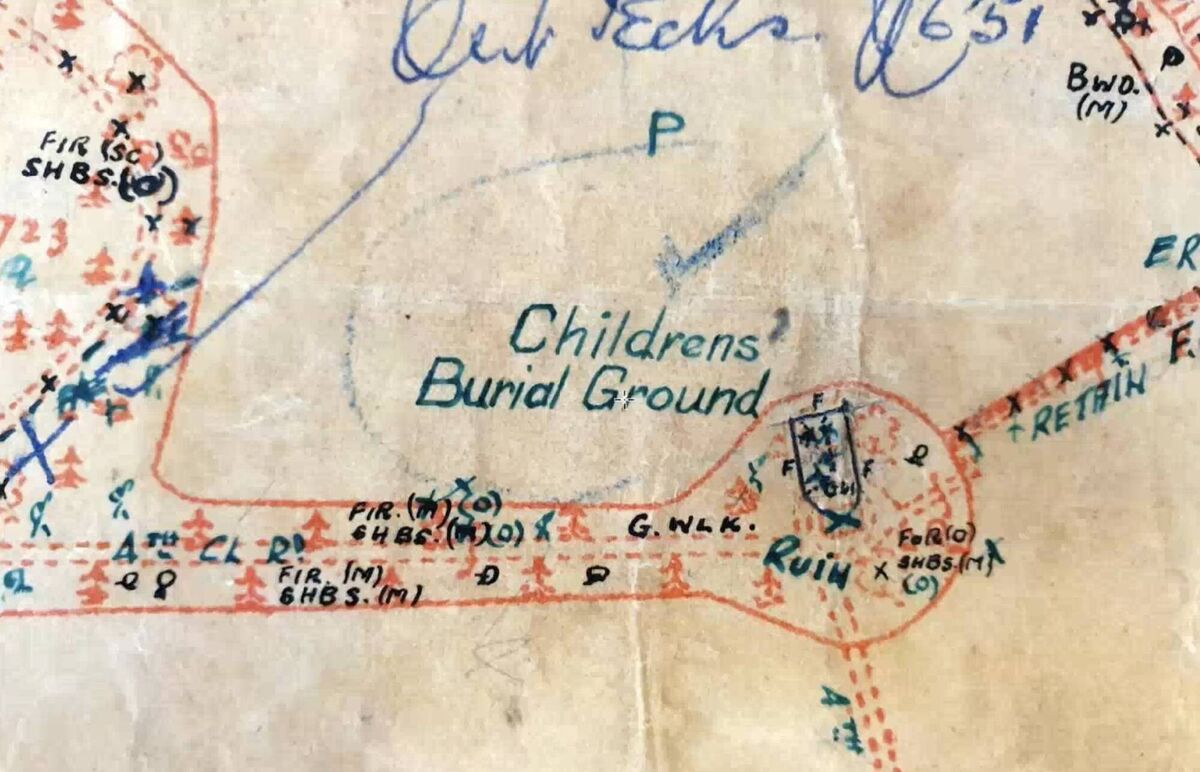 P
BWD.
(M)
FIR (SC)
SHBS.(O)
723
ER
Childrens'
Burial Ground
F
F
F
RETAIN
FIR.(M)(O)
SHBS.(M)(O)
G. WLK.
4TH CL RD
FIR. (M)
SHBS. (M)
RUIN
FOR(O)
SHBS.(M)
(O)
4TH